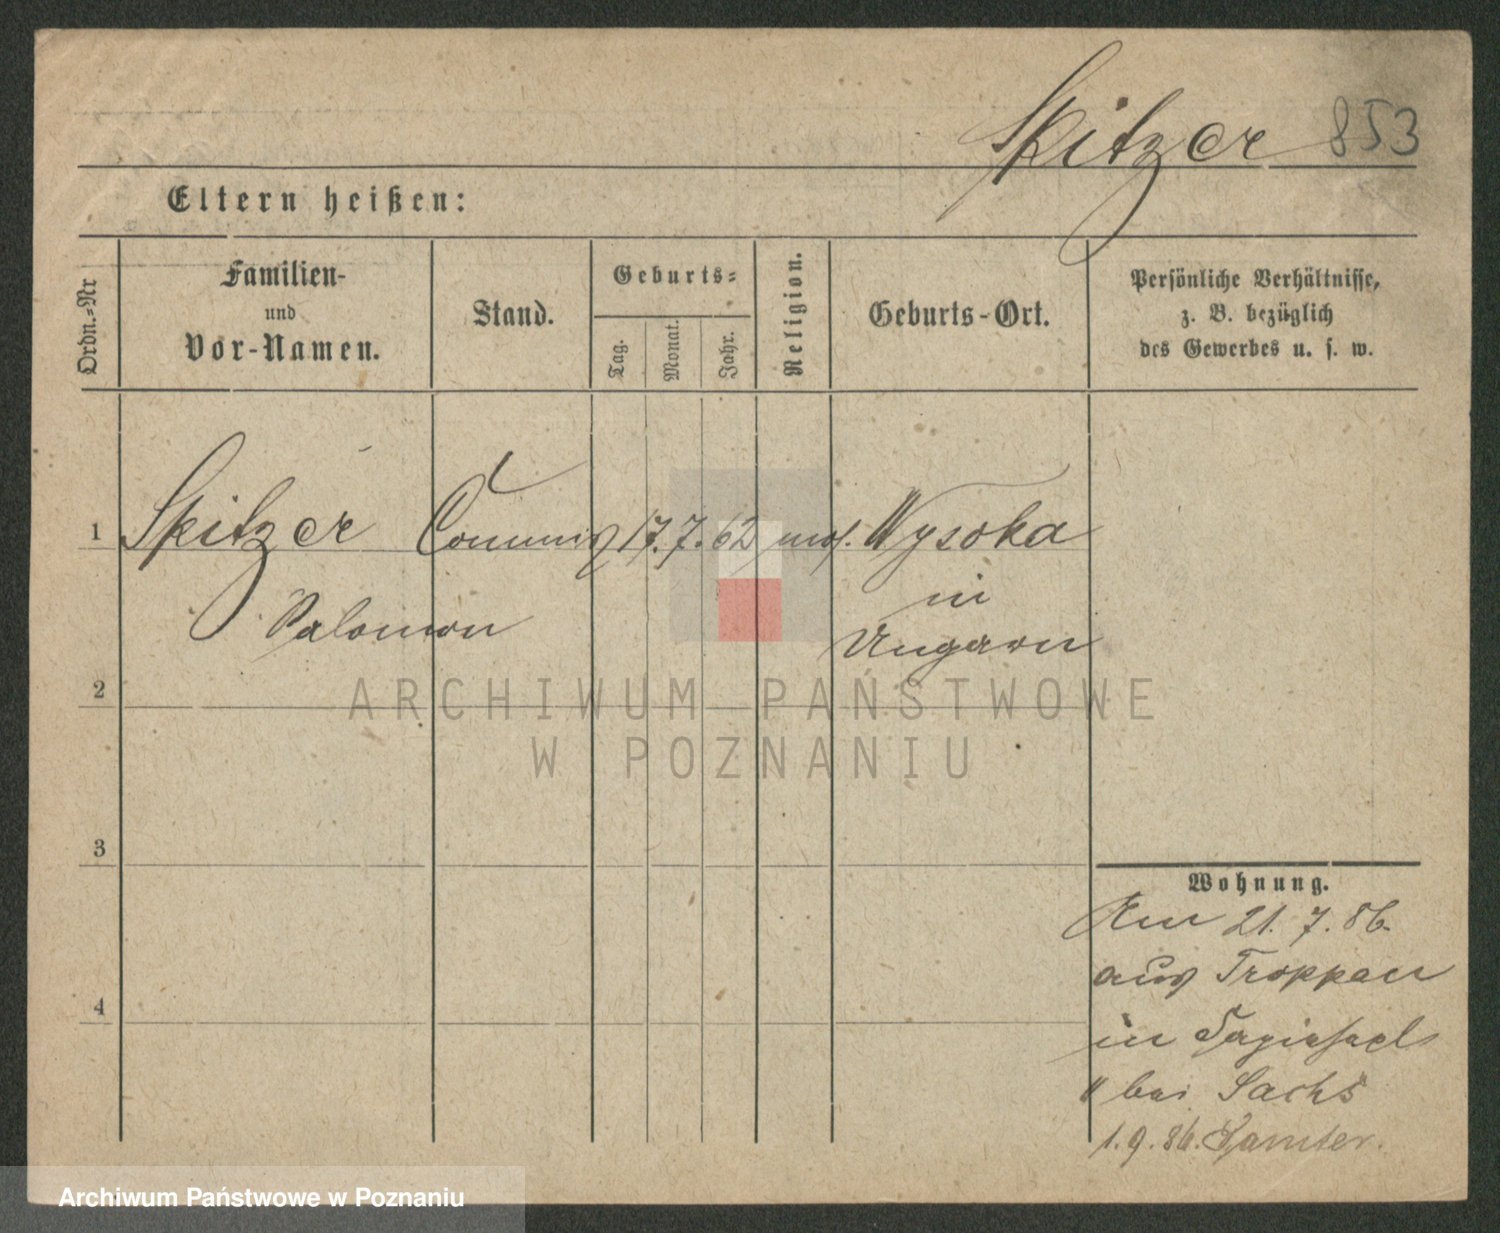 Spitzer 853
Eltern heißen:
Ordn.-Nr
Familien-
und
Vor-Namen.
Stand.
Geburts-
Tag.
Monat.
Jahr.
Religion.
Geburts-Ort.
Persönliche Verhältnisse,
z. B. bezüglich
des Gewerbes u. s. w.
1 Spitzer Commis 17. 7. 62 mos. Wysoka
in
Salomon Ungarn
2
ARCHIWUM PAŃSTWOWE
W POZNANIU
3
Wohnung.
Am 21. 7. 86.
aus Troppau
in
4
" bei Sachs
1. 9. 86. Samter.
Archiwum Państwowe w Poznaniu